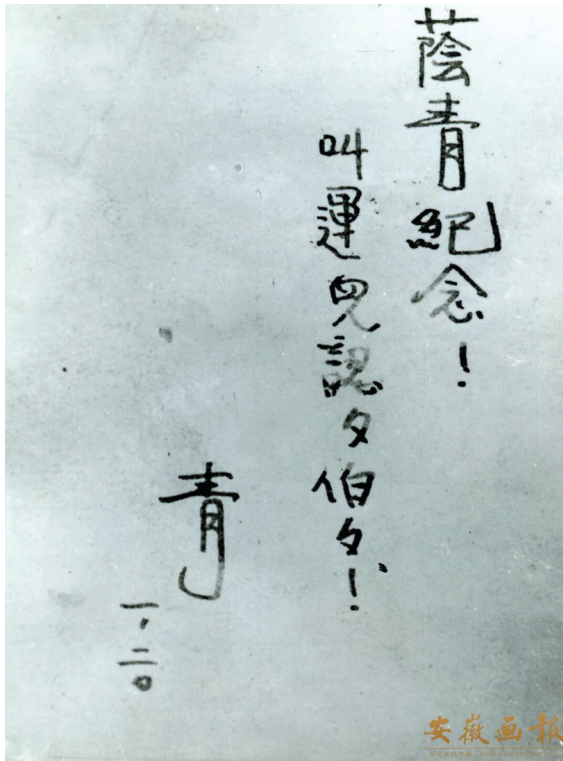 蔭青紀念！
叫運兒認々伯々！
青
一.二〇
安徽画报